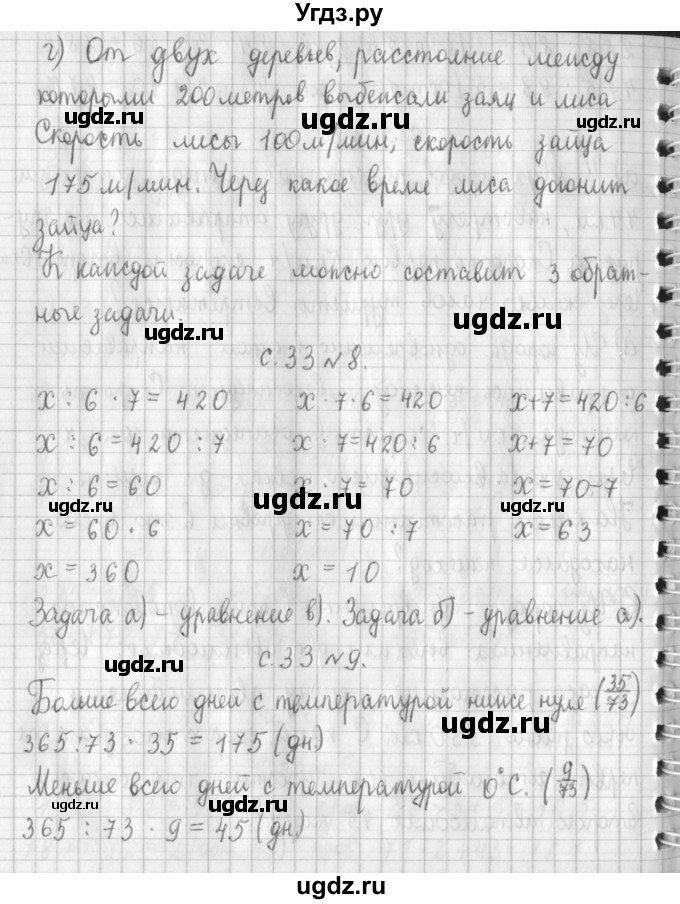 Угдз.ру
г) От двух деревьев, расстояние между
которыми 200 метров выбежали заяц и лиса
ugdz.ru ugdz.ru ugdz.ru
Скорость лисы 100 м/мин, скорость зайца
175 м/мин. Через какое время лиса догонит
зайца?
К каждой задаче можно составит 3 обрат-
ные задачи.
ugdz.ru ugdz.ru
с. 33 №8.
x : 6 · 7 = 420 x · 7 · 6 = 420 x+7=420:6
x : 6 = 420 : 7 x · 7=420:6 x+7=70
x : 6 = 60 x · 7 = 70 x=70-7
ugdz.ru ugdz.ru ugdz.ru
x = 60 · 6 x = 70 : 7 x=63
x = 360 x = 10
Задача а) - уравнение в). Задача б) - уравнение а).
ugdz.ru ugdz.ru
с. 33 №9.
ugdz.ru
Больше всего дней с температурой ниже нуля (35/73)
ugdz.ru
365:73 · 35 = 175 (дн.)
Меньше всего дней с температурой 0°С. (9/73)
ugdz.ru
365 : 73 · 9 = 45 (дн.)
ugdz.ru ugdz.ru
ugdz.ru